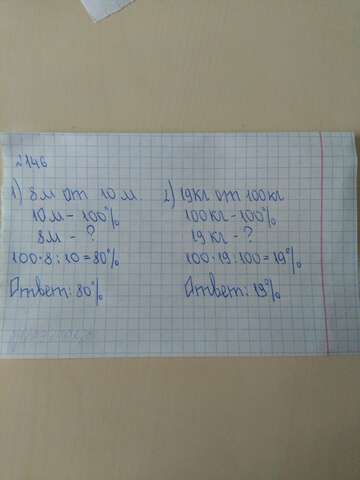 №146
1) 8м от 10 м.
10м - 100%
8м - ?
100·8:10=80%
Ответ: 80%
2) 19кг от 100кг
100кг - 100%
19кг - ?
100·19:100=19%
Ответ: 19%